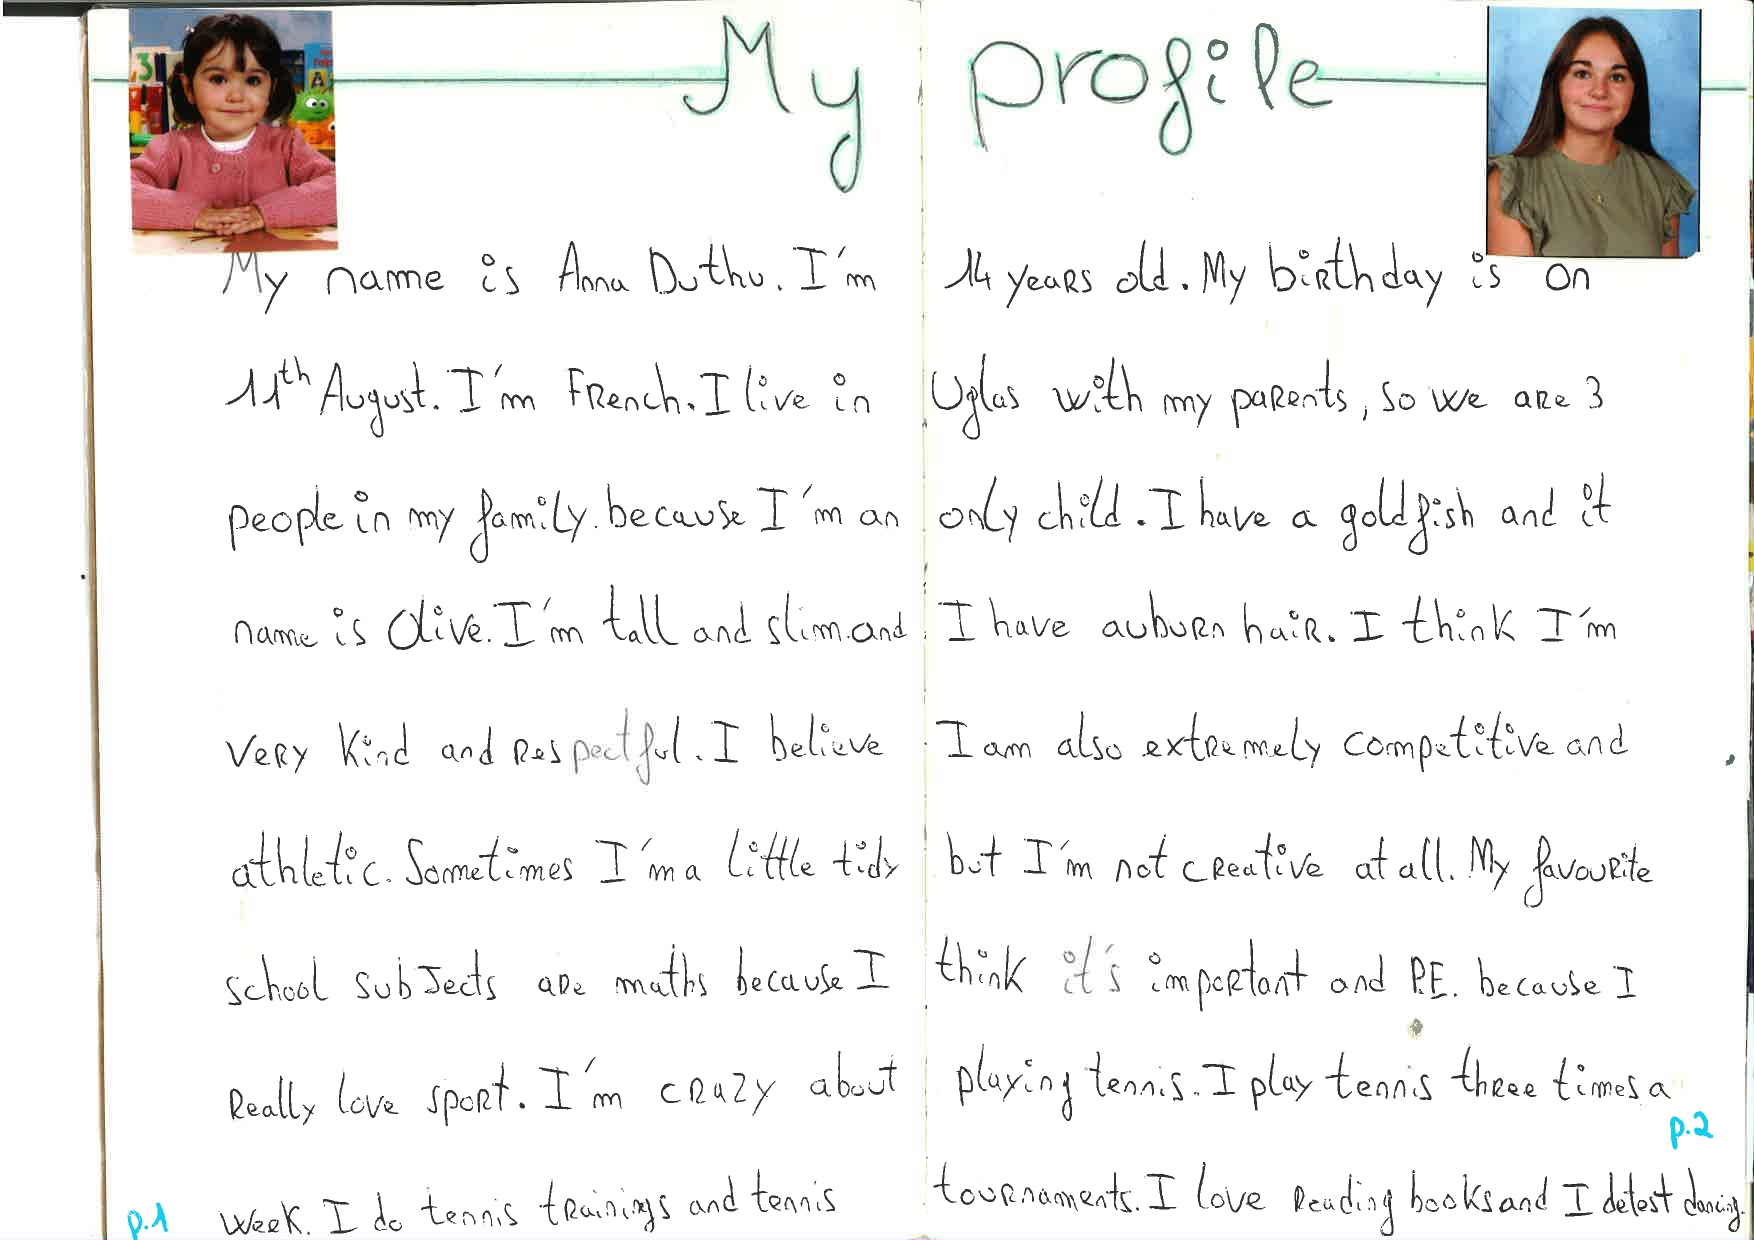 My profile
My name is Anna Duthu. I'm 14 years old. My birthday is on
11th August. I'm French. I live in Uglas with my parents, so we are 3
people in my family. because I'm an only child. I have a goldfish and it
name is Olive. I'm tall and slim and I have auburn hair. I think I'm
very kind and respectful. I believe I am also extremely competitive and
athletic. Sometimes I'm a little tidy but I'm not creative at all. My favourite
school subjects are maths because I think it's important and P.E. because I
Really love sport. I'm crazy about playing tennis. I play tennis three times a
week. I do tennis trainings and tennis tournaments. I love reading books and I detest dancing.
p.1
p.2